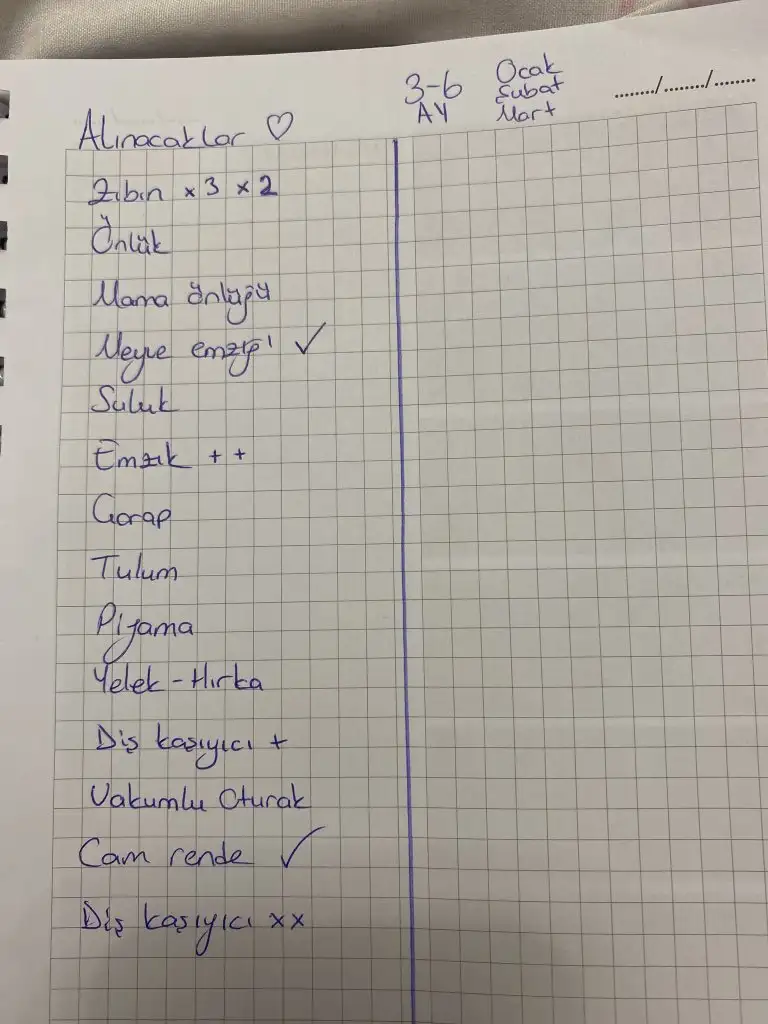 3-6 Ocak
AY Şubat
Mart
......../......../........
Alınacaklar ♡
Zıbın x 3 x 2
Önlük
Mama önlüğü
Meyve emziği ✓
Suluk
Emzik + +
Çorap
Tulum
Pijama
Yelek - Hırka
Diş kaşıyıcı +
Vakumlu Oturak
Cam rende ✓
Diş kaşıyıcı xx